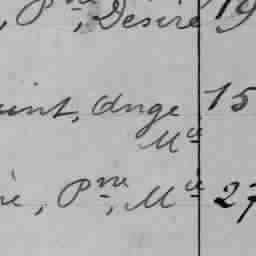 , Pre, Désiré 19
int, Ange 15
Mie
re, Pre, Mie 27